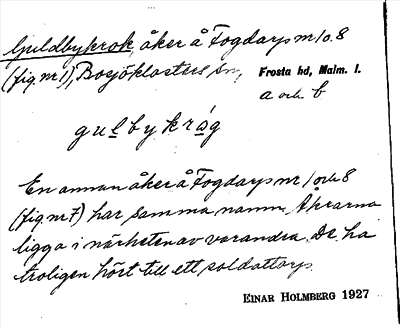 Guldbykrok, åker å Fogdarps nr 1 o. 8
(fig. nr 1), Bosjöklosters sn,
Frosta hd, Malm. l.
a och b
gulbykråg
En annan åker å Fogdarps nr 1 och 8
(fig nr 7) har samma namn. Åkrarna
ligga i närheten av varandra. De ha
troligen hört till ett soldattorp.
EINAR HOLMBERG 1927